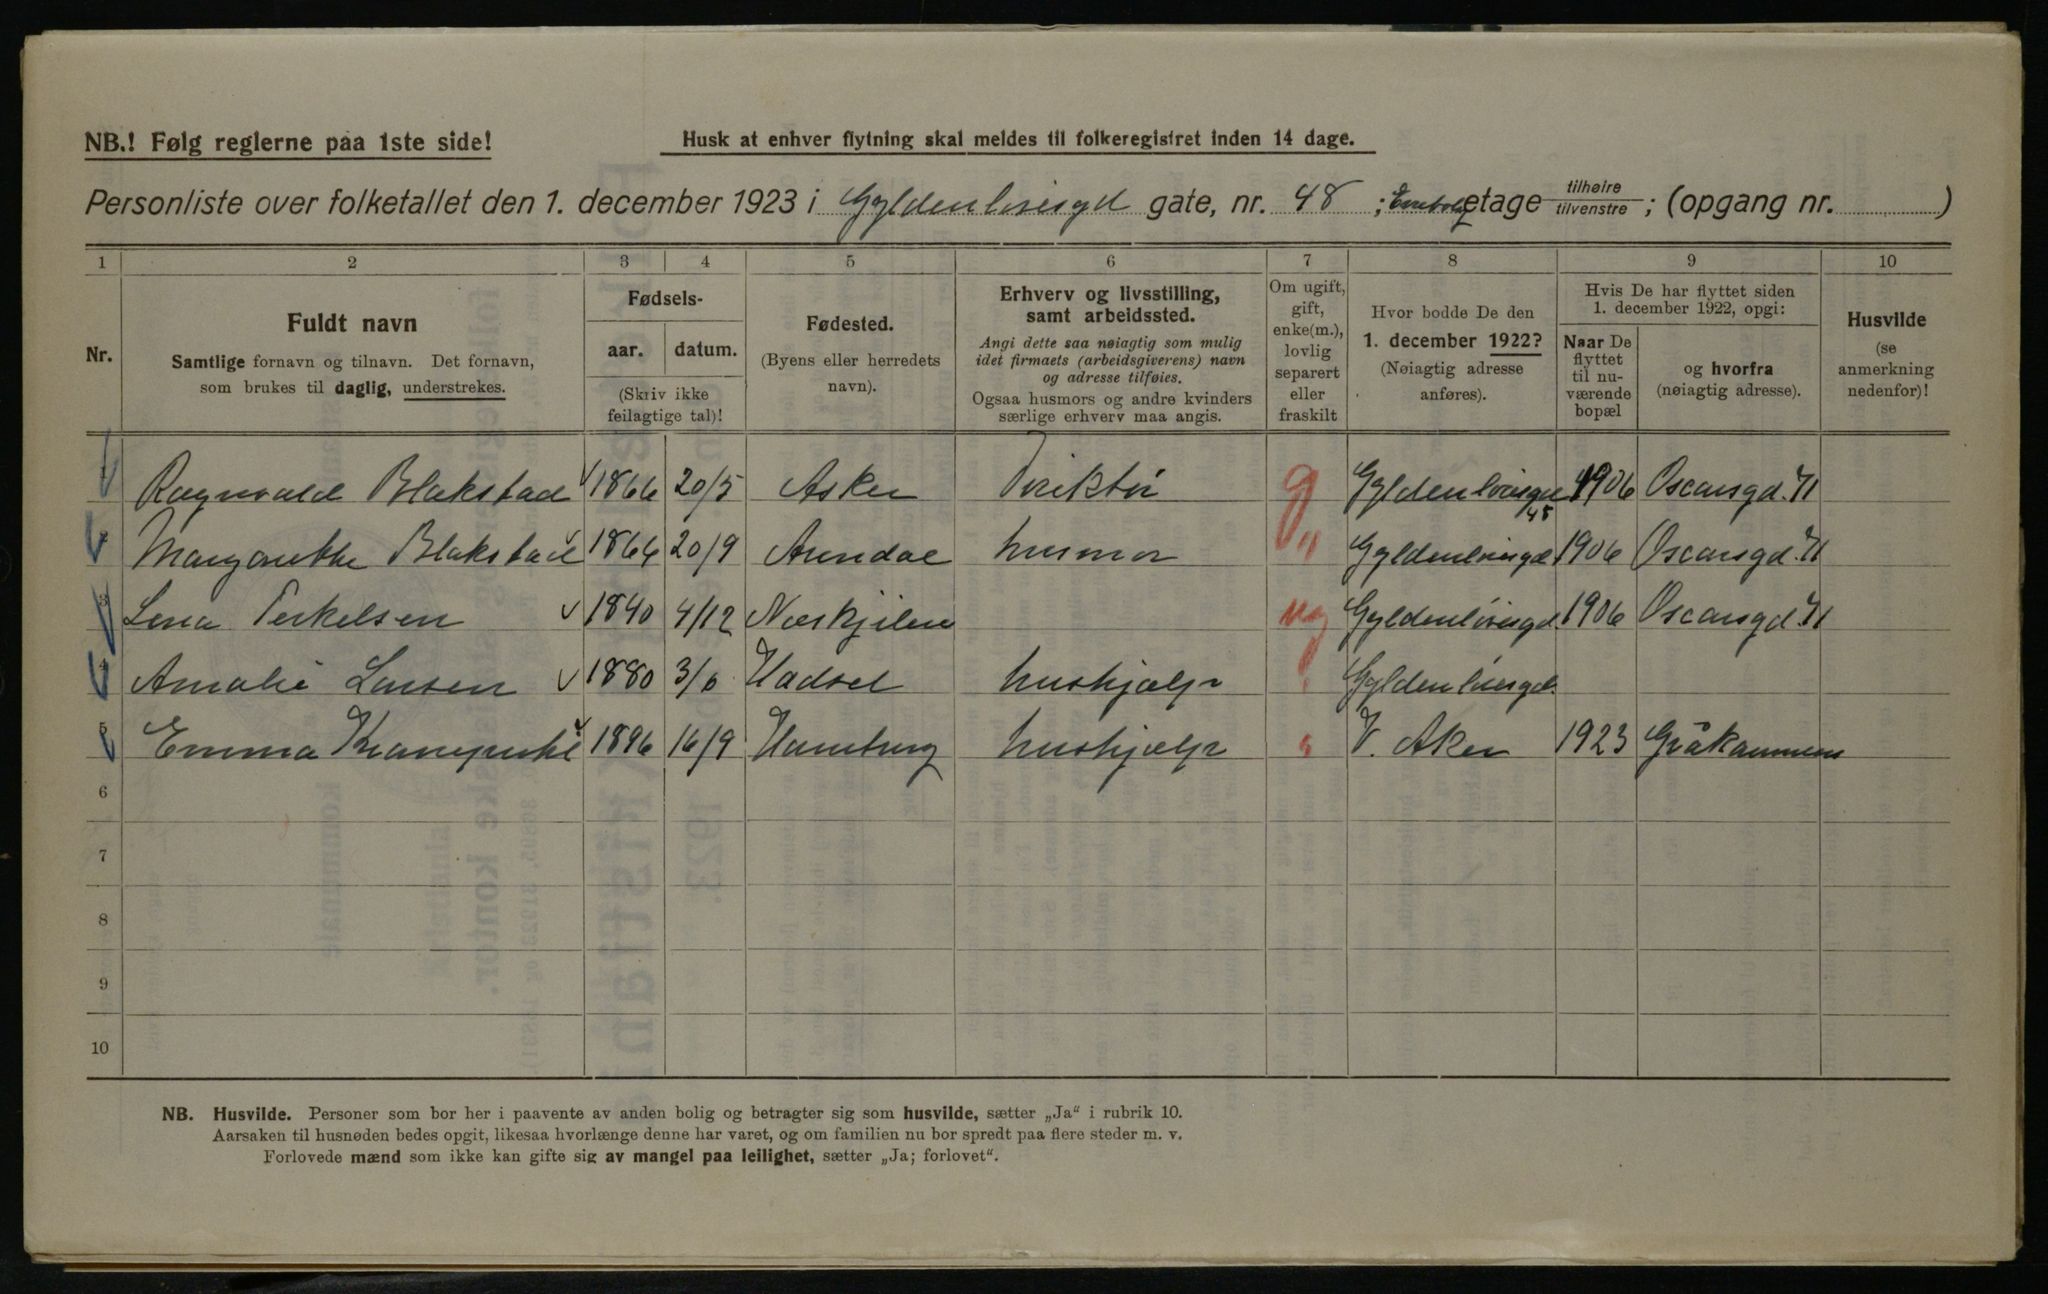 NB.! Følg reglerne paa 1ste side!
Husk at enhver flytning skal meldes til folkeregistret inden 14 dage.
Personliste over folketallet den 1. december 1923 i Gyldenløvesgd gate, nr. 48 ; Enebolig etage tilhøire/tilvenstre ; (opgang nr. )
1 2 3 4 5 6 7 8 9 10
Nr.
Fuldt navn
Samtlige fornavn og tilnavn. Det fornavn,
som brukes til daglig, understrekes.
Fødsels-
aar. datum.
(Skriv ikke
feilagtige tal)!
Fødested.
(Byens eller herredets
navn).
Erhverv og livsstilling,
samt arbeidssted.
Angi dette saa nøiagtig som mulig
idet firmaets (arbeidsgiverens) navn
og adresse tilføies.
Ogsaa husmors og andre kvinders
særlige erhverv maa angis.
Om ugift,
gift,
enke(m.),
lovlig
separert
eller
fraskilt
Hvor bodde De den
1. december 1922?
(Nøiagtig adresse
anføres).
Hvis De har flyttet siden
1. december 1922, opgi:
Naar De
flyttet
til nu-
værende
bopæl
og hvorfra
(nøiagtig adresse).
Husvilde
(se
anmerkning
nedenfor)!
1 Ragnvald Blakstad 1866 20/5 Asker Direktør g Gyldenløvesgd 48 1906 Oscarsgd. 71
2 Margarethe Blakstad 1864 20/9 Arendal husmor " Gyldenløvesgd 1906 Oscarsgd. 71
3 Lena Terkelsen 1840 4/12 Næskjilen ug Gyldenløvesgd. 1906 Oscarsgd. 71
4 Amalie Larsen 1880 3/6 Hadsel hushjælp Gyldenløvesgd.
5 Emma 1896 16/9 Hamburg hushjælp V. Aker 1923 Gråkammens
6
7
8
9
10
NB. Husvilde. Personer som bor her i paavente av anden bolig og betragter sig som husvilde, sætter „Ja“ i rubrik 10.
Aarsaken til husnøden bedes opgit, likesaa hvorlænge denne har varet, og om familien nu bor spredt paa flere steder m. v.
Forlovede mænd som ikke kan gifte sig av mangel paa leilighet, sætter „Ja; forlovet“.